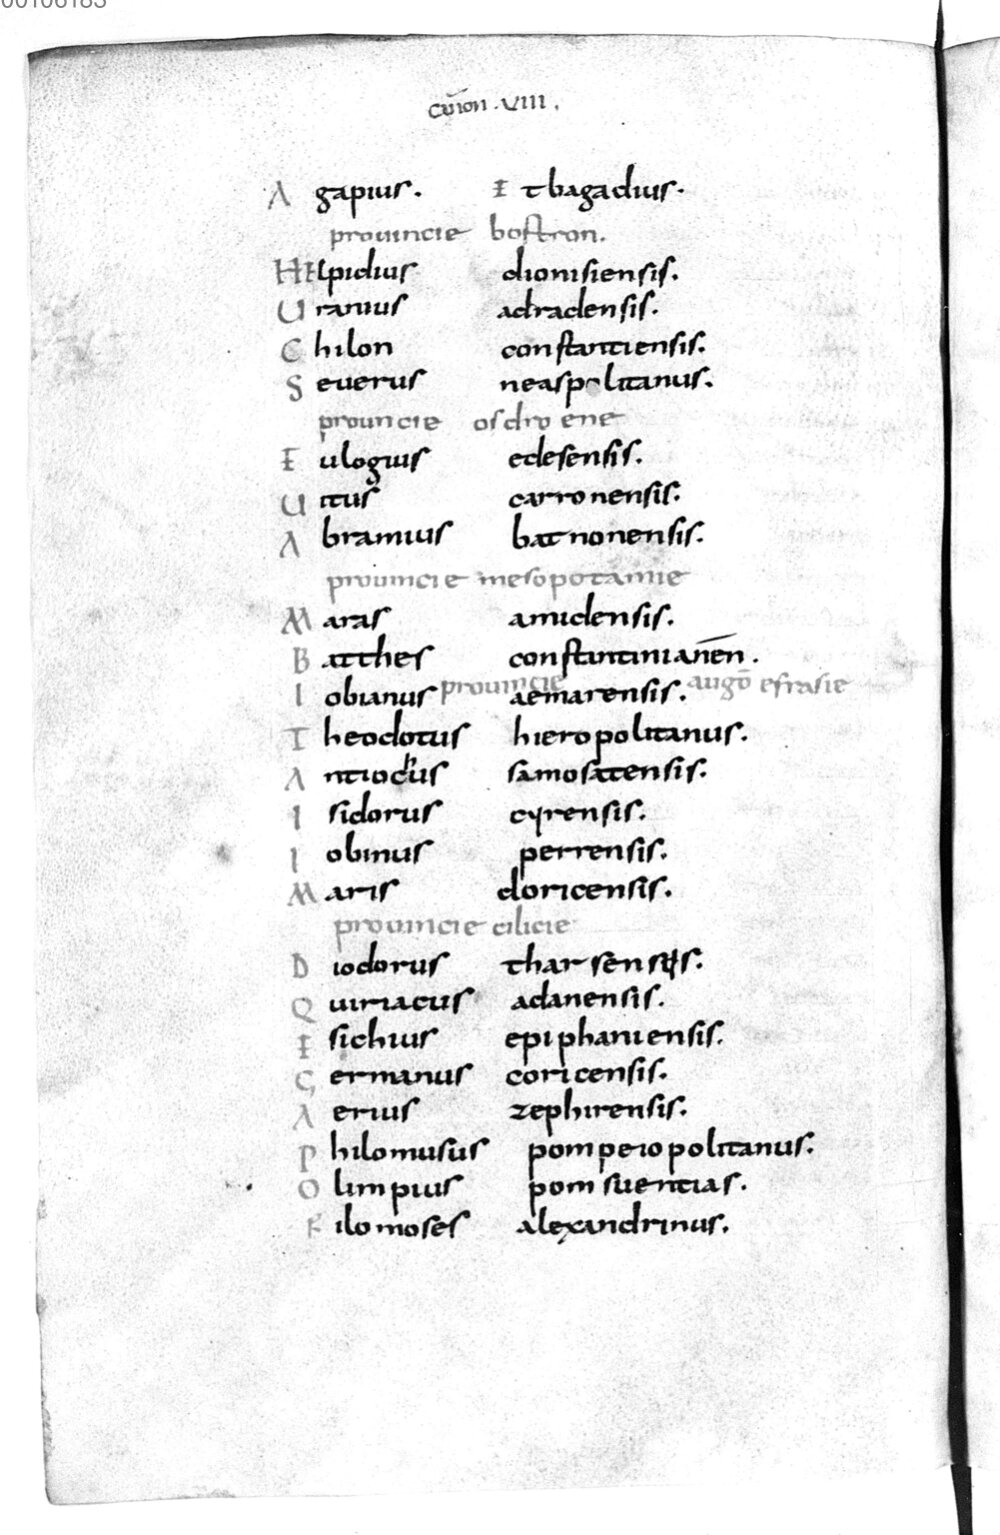 00106183
cū̅ion . VIII .
Agapius. Et bagadius.
prouincie bostron.
HElpidius dionisiensis.
Uranius adradensis.
Chilon constantiensis.
Seuerus neaspolitanus.
prouincie osdro ene
Eulogius edesensis.
Uitus carronensis.
Abramius batnonensis.
prouincie mesopotamie
Maras amidensis.
Batthes constantinianen̅.
Iobianus prouincie aemarensis. augō efrasie
Theodotus hieropolitanus.
Antiochus samosatensis.
Isidorus cyrensis.
Iobinus perrensis.
Maris doricensis.
prouincie cilicie
Diodorus tharsensis.
Quiriacus adanensis.
Esichius epiphaniensis.
Germanus coricensis.
Aerius zephirensis.
Philomusus pompeiopolitanus.
Olimpius pomsuentias.
Filomoses alexandrinus.